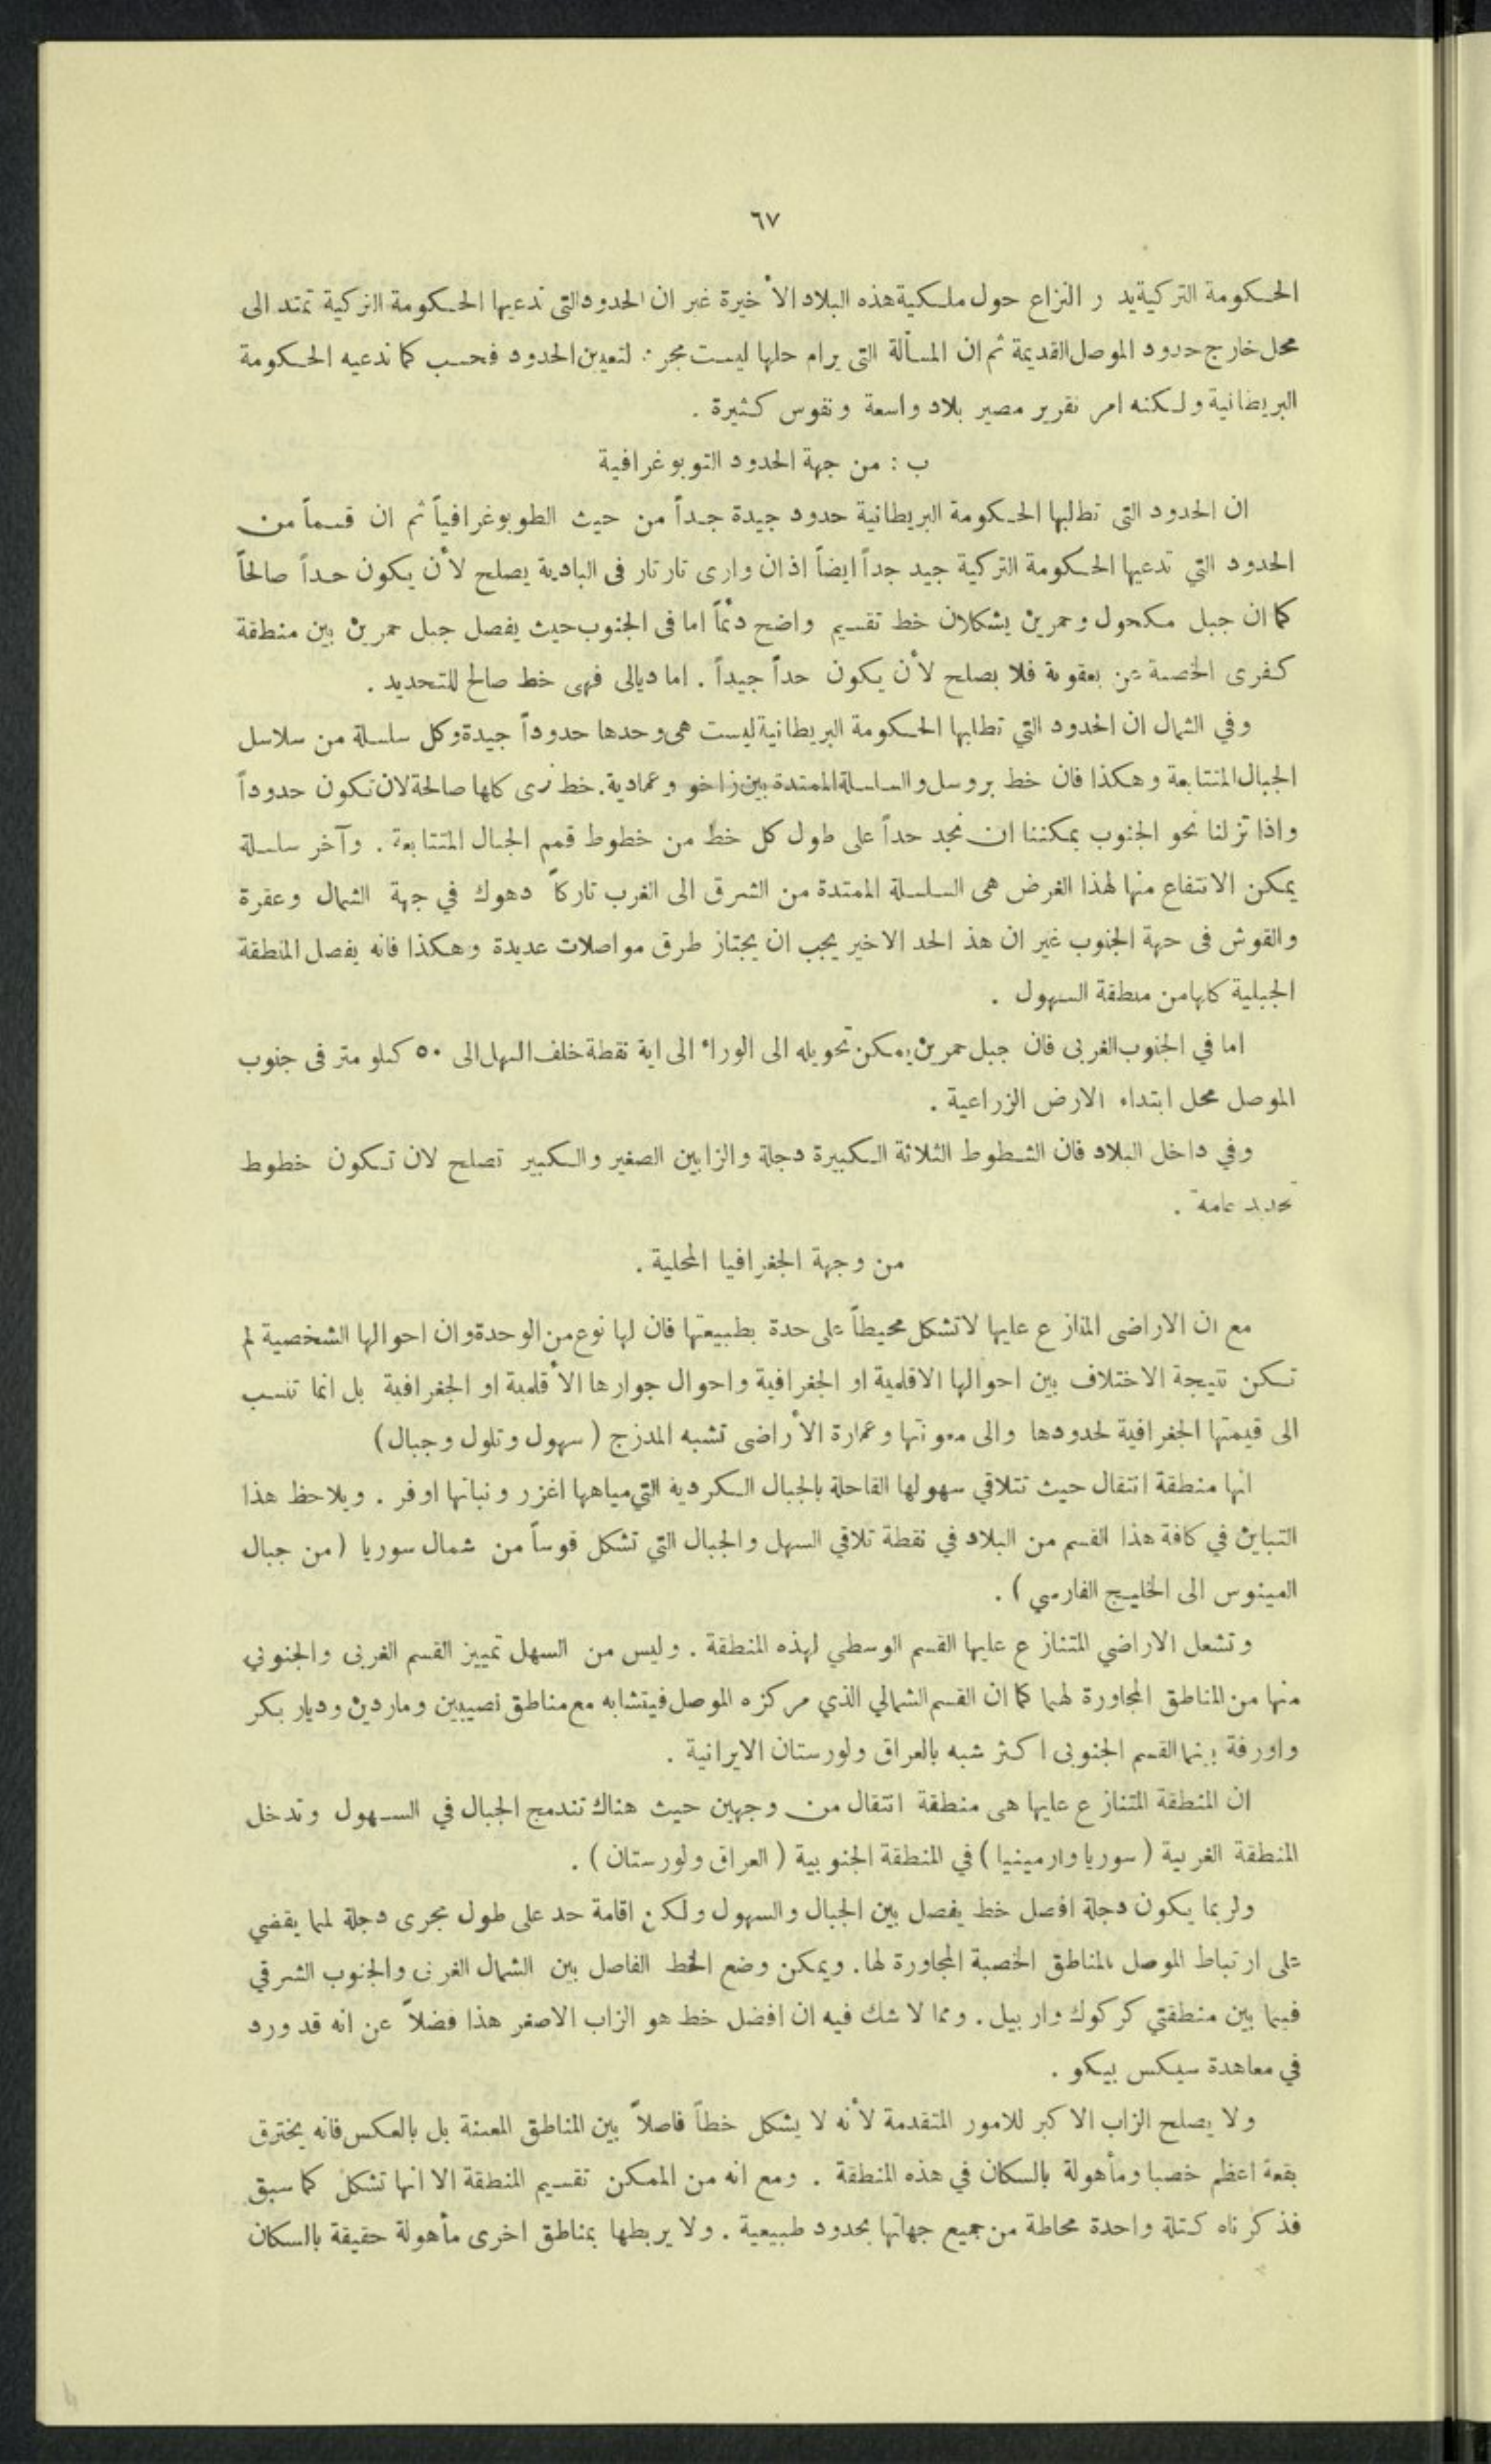 ٦٧
الحكومة التركية يد ر النزاع حول ملكية هذه البلاد الأخيرة غير ان الحدود التى تدعيها الحكومة التركية تمتد الى
محل خارج حدود الموصل القديمة ثم ان المسألة التى يرام حلها ليست مجر : لتعيين الحدود فحسب كما تدعيه الحكومة
البريطانية ولكنه امر تقرير مصير بلاد واسعة ونفوس كثيرة .
ب : من جهة الحدود التوبوغرافية
ان الحدود التى تطلبها الحكومة البريطانية حدود جيدة جداً من حيث الطوبوغرافياً ثم ان قسماً من
الحدود التي تدعيها الحكومة التركية جيد جداً ايضاً اذ ان وارى تارتار فى البادية يصلح لأن يكون حداً صالحاً
كما ان جبل مكحول وحمرين يشكلان خط تقسيم واضح دئماً اما فى الجنوب حيث يفصل جبل حمرين بين منطقة
كفرى الخصبة عن بعقوبة فلا يصلح لأن يكون حداً جيداً . اما ديالى فهى خط صالح للتحديد .
وفي الشمال ان الحدود التي تطلبها الحكومة البريطانية ليست هى وحدها حدوداً جيدة وكل سلسلة من سلاسل
الجبال المتتابعة وهكذا فان خط بروسل والسلسلة الممتدة بين زاخو وعمادية. خط نرى كلها صالحة لان تكون حدوداً
واذا نزلنا نحو الجنوب يمكننا ان نجد حداً على طول كل خط من خطوط قمم الجبال المتتابعة . وآخر سلسلة
يمكن الانتفاع منها لهذا الغرض هى السلسلة الممتدة من الشرق الى الغرب تاركاً دهوك في جهة الشمال وعقرة
والقوش فى جهة الجنوب غير ان هذ الحد الاخير يجب ان يجتاز طرق مواصلات عديدة وهكذا فانه يفصل المنطقة
الجبلية كلها من منطقة السهول .
اما في الجنوب الغربى فان جبل حمرين يمكن تحويله الى الوراء الى اية نقطة خلف السهل الى ٥٠ كيلو متر فى جنوب
الموصل محل ابتداء الارض الزراعية .
وفي داخل البلاد فان الشطوط الثلاثة الكبيرة دجلة والزابين الصغير والكبير تصلح لان تكون خطوط
تحديد عامة .
من وجهة الجغرافيا المحلية .
مع ان الاراضى المتازع عليها لاتشكل محيطاً على حدة بطبيعتها فان لها نوع من الوحدة وان احوالها الشخصية لم
تكن نتيجة الاختلاف بين احوالها الاقلمية او الجغرافية واحوال جوارها الأقلمية او الجغرافية بل انما تنسب
الى قيمتها الجغرافية لحدودها والى معونتها وعمارة الأراضى تشبه المدزج ( سهول وتلول وجبال )
انها منطقة انتقال حيث تتلاقي سهولها القاحلة بالجبال الكردية التي مياهها اغزر ونباتها اوفر . ويلاحظ هذا
التباين في كافة هذا القسم من البلاد في نقطة تلاقي السهل والجبال التي تشكل قوساً من شمال سوريا ( من جبال
المينوس الى الخليج الفارسي ) .
وتشعل الاراضي المتنازع عليها القسم الوسطي لهذه المنطقة . وليس من السهل تمييز القسم الغربى والجنوبي
منها من المناطق المجاورة لهما كما ان القسم الشمالي الذي مركزه الموصل فيتشابه مع مناطق نصيبين وماردين وديار بكر
واورفة بينما القسم الجنوبى اكثر شبه بالعراق ولورستان الايرانية .
ان المنطقة المتنازع عليها هى منطقة انتقال من وجهين حيث هناك تندمج الجبال في السهول وتدخل
المنطقة الغربية ( سوريا وارمينيا ) في المنطقة الجنوبية ( العراق ولورستان ) .
ولربما يكون دجلة افصل خط يفصل بين الجبال والسهول ولكن اقامة حد على طول مجرى دجلة لمما يقضي
على ارتباط الموصل بالمناطق الخصبة المجاورة لها. ويمكن وضع الخط الفاصل بين الشمال الغربى والجنوب الشرقي
فيما بين منطقتي كركوك واربيل . ومما لا شك فيه ان افضل خط هو الزاب الاصغر هذا فضلاً عن انه قد ورد
في معاهدة سيكس بيكو .
ولا يصلح الزاب الاكبر للامور المتقدمة لأنه لا يشكل خطاً فاصلاً بين المناطق المعينة بل بالعكس فانه يخترق
بقعة اعظم خصبا ومأهولة بالسكان في هذه المنطقة . ومع انه من الممكن تقسيم المنطقة الا انها تشكل كما سبق
فذكرناه كتلة واحدة محاطة من جميع جهاتها بحدود طبيعية . ولا يربطها بمناطق اخرى مأهولة حقيقة بالسكان